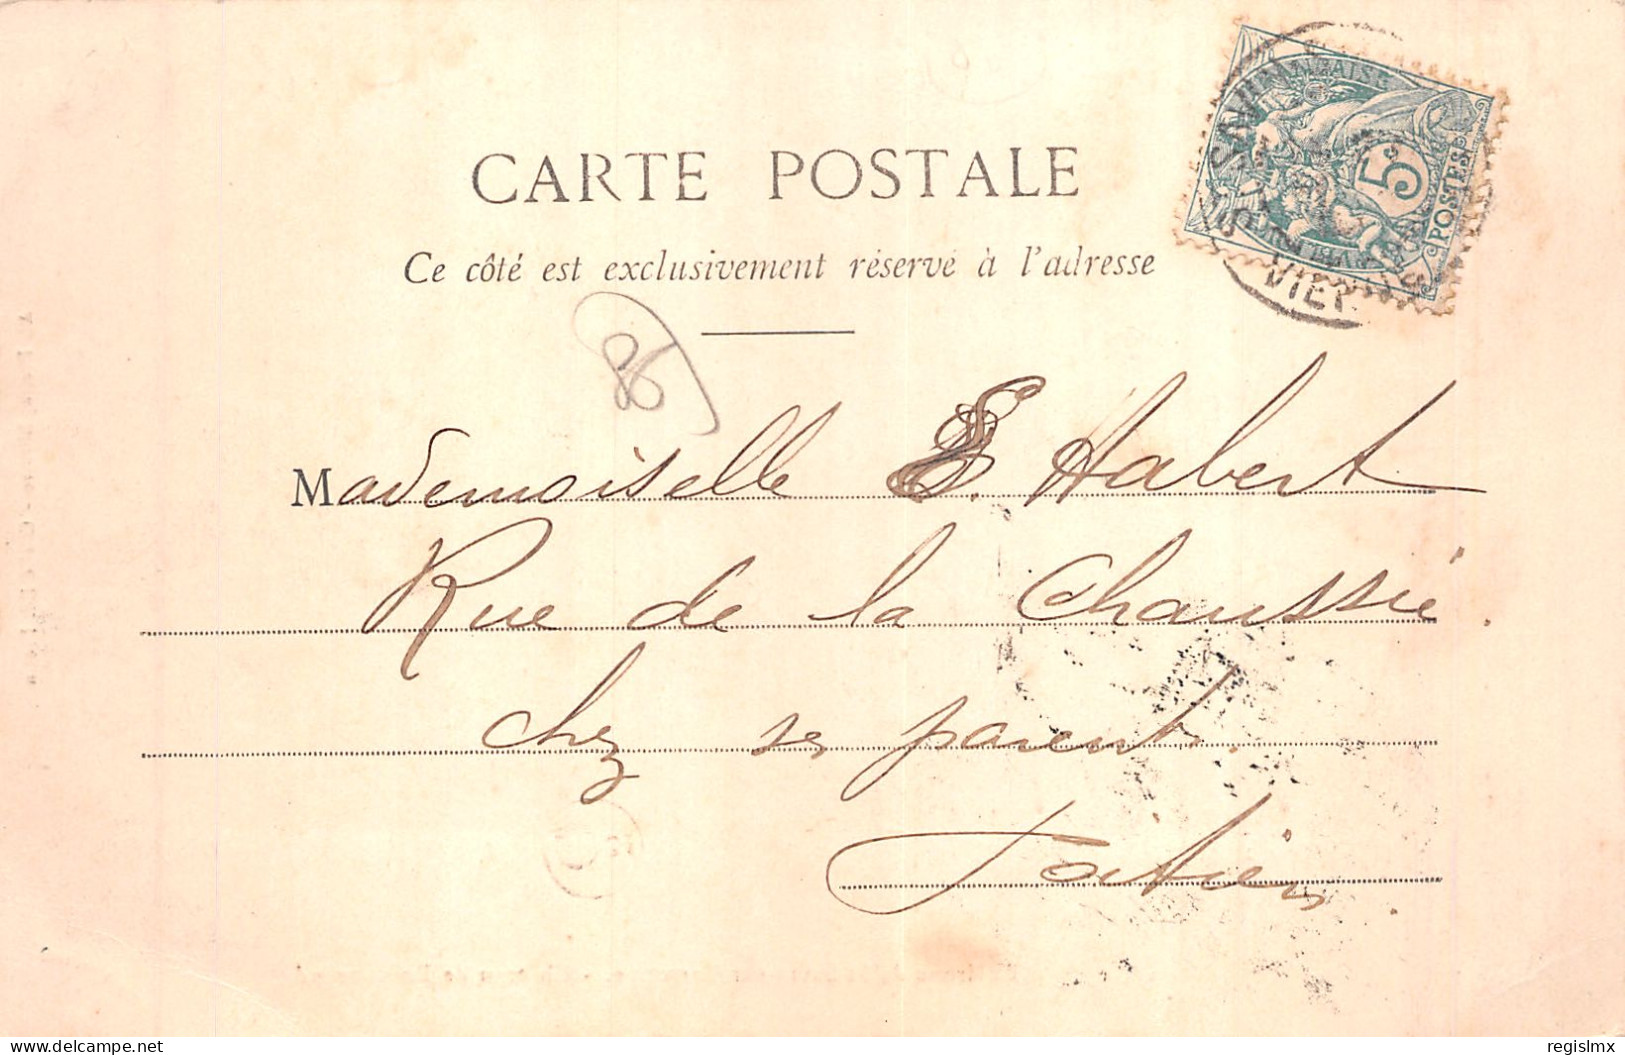 CARTE POSTALE
Ce côté est exclusivement réservé à l'adresse
5c
POSTES
Mademoiselle E. Habert
Rue de la Chaussée.
chez ses parents.
Poitiers.
delcampe.net
regislmx